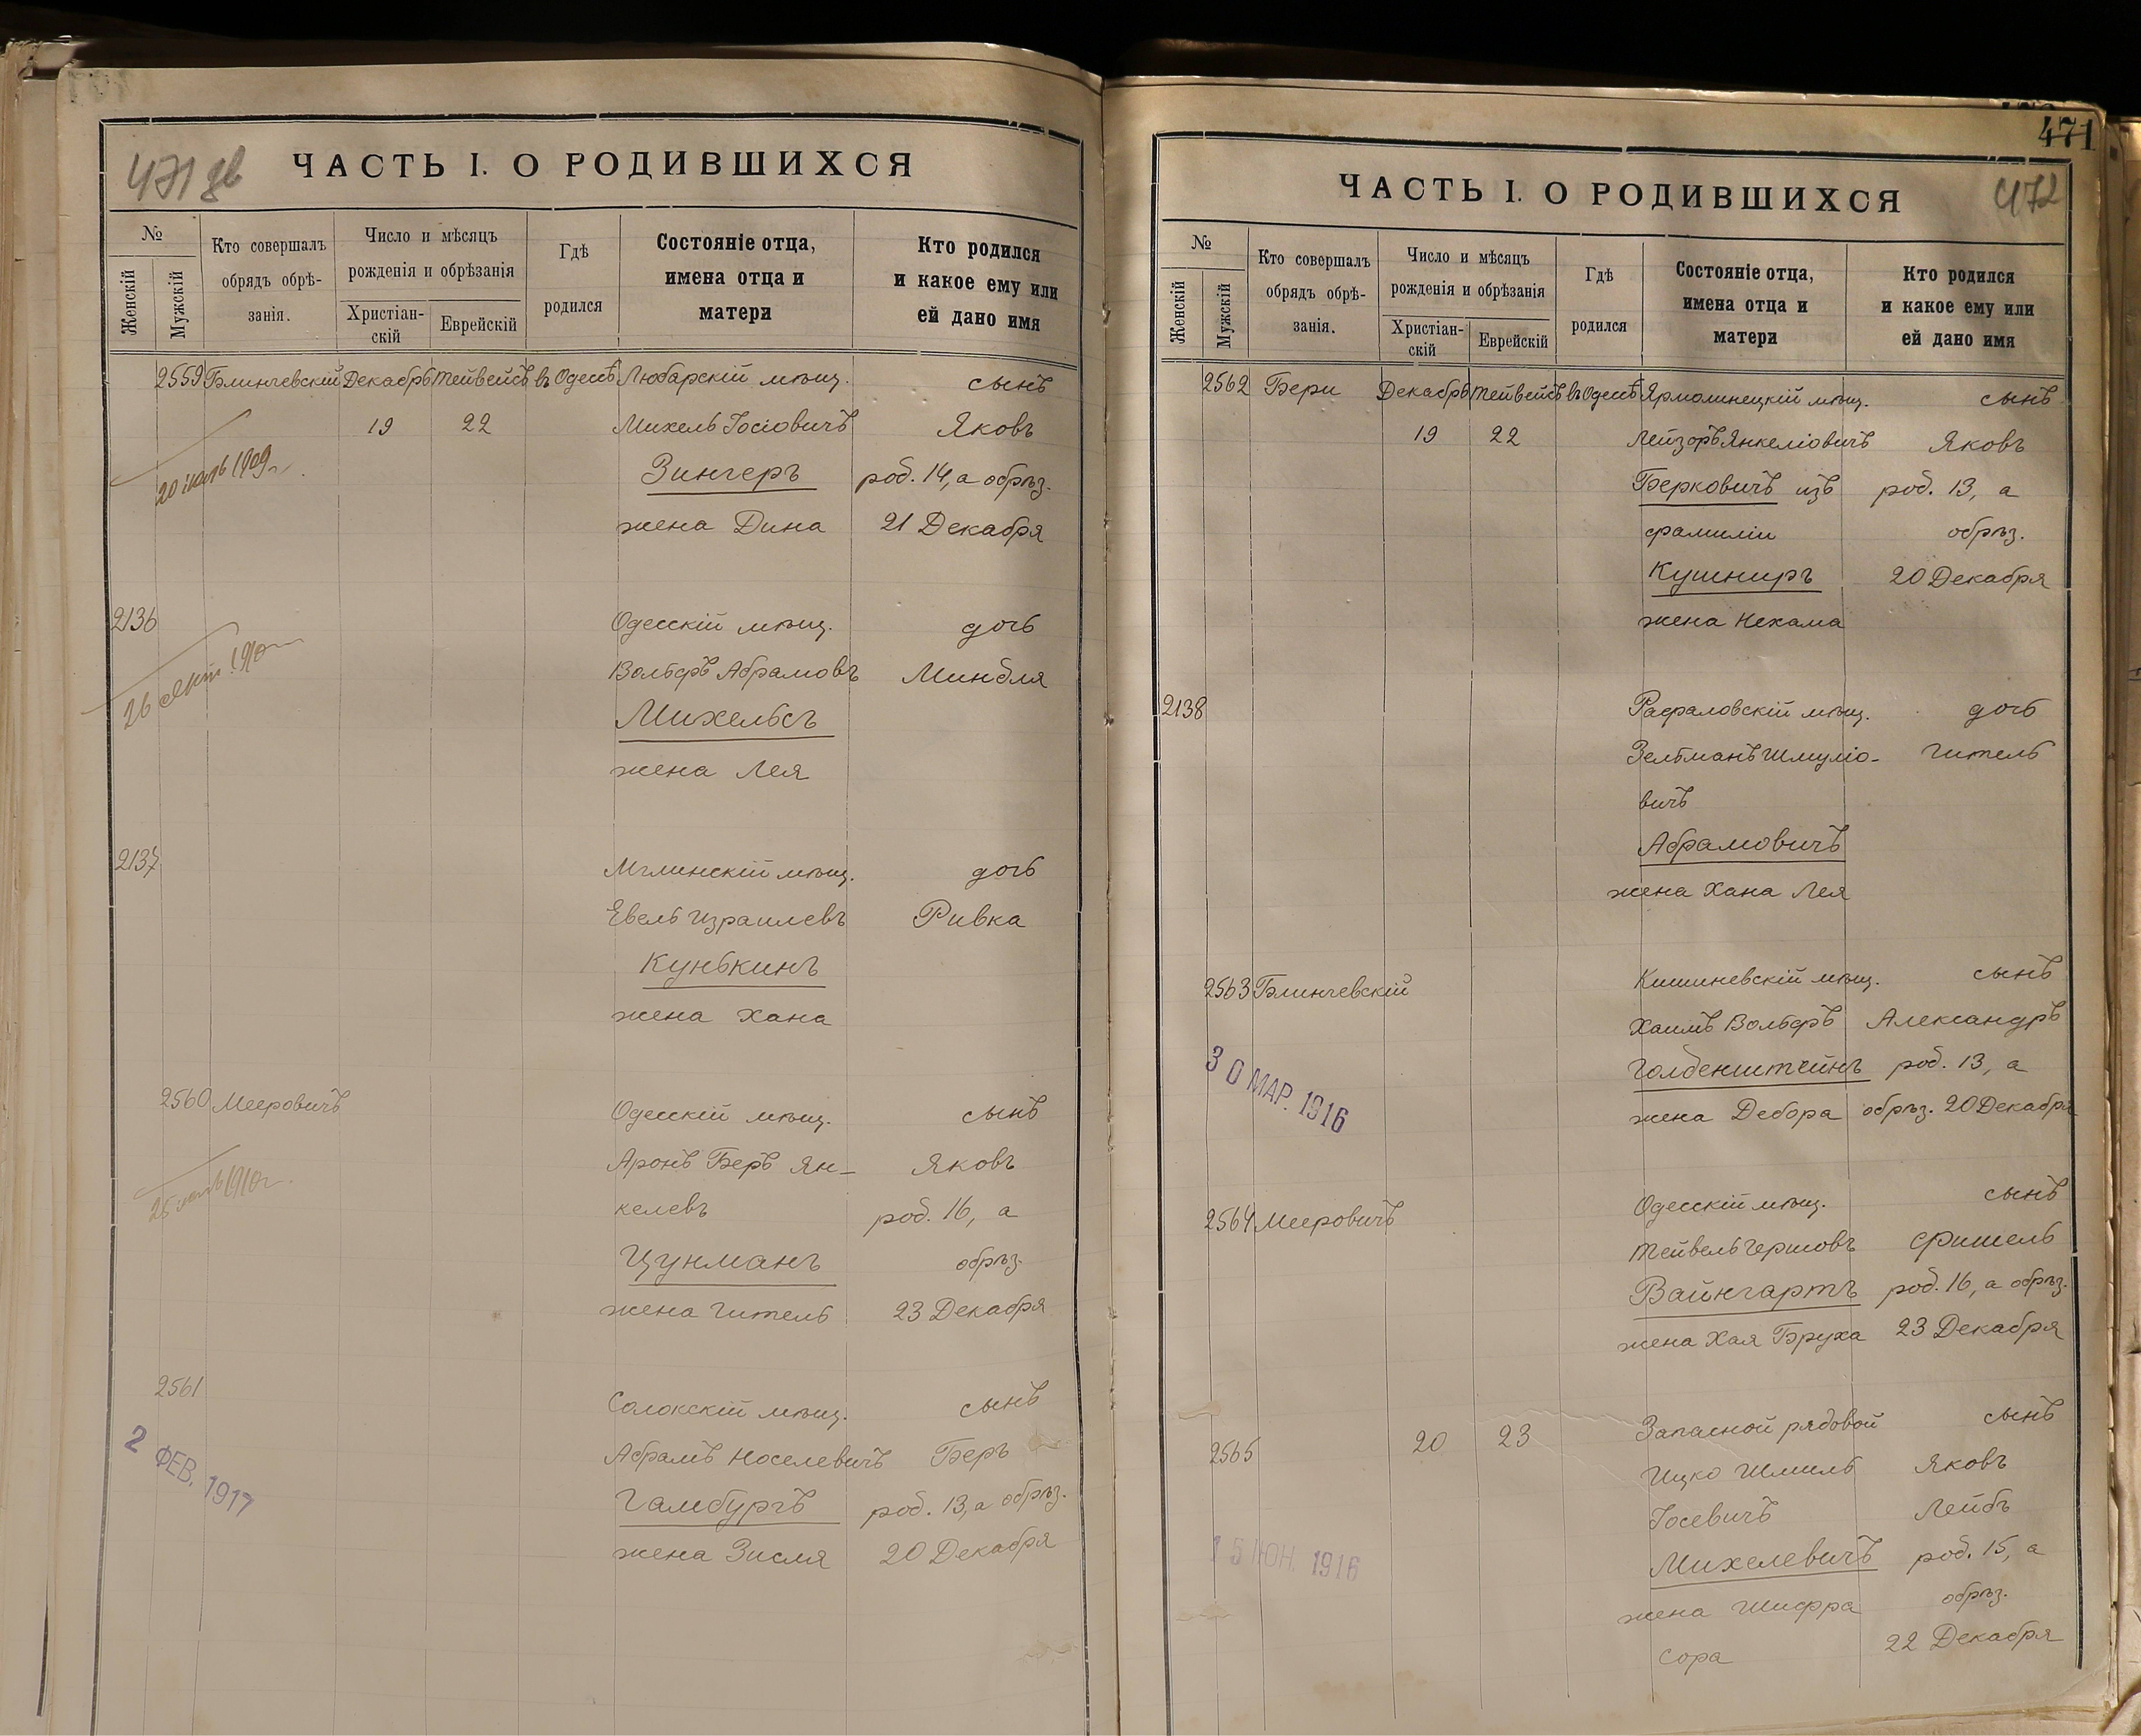 471 зв
ЧАСТЬ I. О РОДИВШИХСЯ
№
Женскій
Мужскій
Кто совершалъ
обрядъ обрѣ-
занія.
Число и мѣсяцъ
рожденія и обрѣзанія
Христіан-
скій
Еврейскій
Гдѣ
родился
Состояніе отца,
имена отца и
матери
Кто родился
и какое ему или
ей дано имя
2559 Блинчевскій Декабрь Тейвейсъ въ Одессѣ Любарскій мѣщ. сынъ
19 22 Михель Іосіовичъ Яковъ
20 1909 г.
Зингеръ род. 14, а обрѣз.
жена Дина 21 Декабря
2136 Одесскій мѣщ. дочь
Вольфъ Абрамовъ Миндля
26 1910
Михельсъ
жена Лея
2137 Мглинскій мѣщ. дочь
Евель Израилевъ Ривка
Кунькинъ
жена Хана
2560 Мееровичъ Одесскій мѣщ. сынъ
Аронъ Беръ Ян- Яковъ
25 1910 г.
келевъ род. 16, а
Цунманъ обрѣз.
жена Гитель 23 Декабря
2561 Солокскій мѣщ. сынъ
Абрамъ Носелевичъ Беръ
2 ФЕВ. 1917
Гамбургъ род. 13, а обрѣз.
жена Зисля 20 Декабря
471
472
ЧАСТЬ I. О РОДИВШИХСЯ
№
Женскій
Мужскій
Кто совершалъ
обрядъ обрѣ-
занія.
Число и мѣсяцъ
рожденія и обрѣзанія
Христіан-
скій
Еврейскій
Гдѣ
родился
Состояніе отца,
имена отца и
матери
Кто родился
и какое ему или
ей дано имя
2562 Бери Декабрь Тейвейсъ въ Одессѣ Ярмолинецкій мѣщ. сынъ
19 22 Лейзоръ Янкеліовичъ Яковъ
Берковичъ изъ род. 13, а
фамиліи обрѣз.
Кушниръ 20 Декабря
жена Нехама
2138 Рафаловскій мѣщ. дочь
Зельманъ Шмуліо- Гитель
вичъ
Абрамовичъ
жена Хана Лея
2563 Блинчевскій Кишиневскій мѣщ. сынъ
Хаимъ Вольфъ Александръ
Голденштейнъ род. 13, а
30 МАР. 1916
жена Дебора обрѣз. 20 Декабря
2564 Мееровичъ Одесскій мѣщ. сынъ
Тейвель Гершовъ Фишель
Вайнгартъ род. 16, а обрѣз.
жена Хая Бруха 23 Декабря
2565 20 23 Запасной рядовой сынъ
Ицко Шмиль Яковъ
Іосевичъ Лейбъ
15 ІЮН. 1916
Михелевичъ род. 15, а
жена Шифра обрѣз.
Сора 22 Декабря